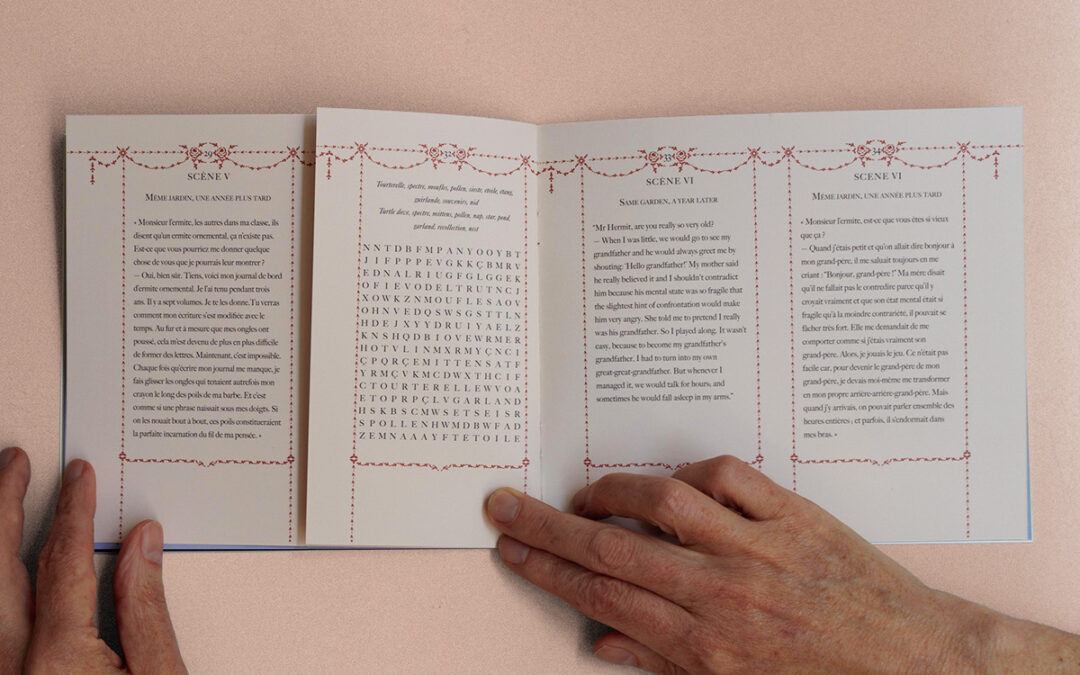 29
SCÈNE V
MÊME JARDIN, UNE ANNÉE PLUS TARD
« Monsieur l'ermite, les autres dans ma classe, ils
disent qu'un ermite ornemental, ça n'existe pas.
Est-ce que vous pourriez me donner quelque
chose de vous que je pourrais leur montrer ?
— Oui, bien sûr. Tiens, voici mon journal de bord
d'ermite ornemental. Je l'ai tenu pendant trois
ans. Il y a sept volumes. Je te les donne. Tu verras
comment mon écriture s'est modifiée avec le
temps. Au fur et à mesure que mes ongles ont
poussé, cela m'est devenu de plus en plus difficile
de former des lettres. Maintenant, c'est impossible.
Chaque fois qu'écrire mon journal me manque, je
fais glisser les ongles qui tenaient autrefois mon
crayon le long des poils de ma barbe. Et c'est
comme si une phrase naissait sous mes doigts. Si
on les nouait bout à bout, ces poils constitueraient
la parfaite incarnation du fil de ma pensée. »
32
Tourterelle, spectre, moufles, pollen, sieste, etoile, étang,
guirlande, souvenirs, nid
Turtle dove, spectre, mittens, pollen, nap, star, pond,
garland, recollection, nest
N N T D B F M P A N Y O O Y B T
J I F P P P E V G K K Ç B M R V
E D N A L R I U G F G L G G E K
O F I E V O D E L T R U T N C J
X O W K Z N M O U F L E S A O V
O H N V E D Q S W S G S T T L N
H D E J X Y Y D R U I Y A E L Z
K N S H Q D B I O V E W R M E R
H O T V L I N M X R M Y Ç N C I
Ç P Q R Ç E M I T T E N S A T F
Y R M Ç V K M C D W X T H C I F
C T O U R T E R E L L E W V O A
E T O P R P Ç L V G A R L A N D
H S K B S C M W S E T S E I S R
S P O L L E N H W M D B W F A D
Z E M N A A A Y F T E T O I L E
33
SCÈNE VI
SAME GARDEN, A YEAR LATER
"Mr Hermit, are you really so very old?
— When I was little, we would go to see my
grandfather and he would always greet me by
shouting: 'Hello grandfather!' My mother said
he really believed it and I shouldn't contradict
him because his mental state was so fragile that
the slightest hint of confrontation would make
him very angry. She told me to pretend I really
was his grandfather. So I played along. It wasn't
easy, because to become my grandfather's
grandfather, I had to turn into my own
great-great-grandfather. But whenever I
managed it, we would talk for hours; and
sometimes he would fall asleep in my arms."
34
SCÈNE VI
MÊME JARDIN, UNE ANNÉE PLUS TARD
« Monsieur l'ermite, est-ce que vous êtes si vieux
que ça ?
— Quand j'étais petit et qu'on allait dire bonjour à
mon grand-père, il me saluait toujours en me
criant : "Bonjour, grand-père !" Ma mère disait
qu'il ne fallait pas le contredire parce qu'il y
croyait vraiment et que son état mental était si
fragile qu'à la moindre contrariété, il pouvait se
fâcher très fort. Elle me demandait de me
comporter comme si j'étais vraiment son
grand-père. Alors, je jouais le jeu. Ce n'était pas
facile car, pour devenir le grand-père de mon
grand-père, je devais moi-même me transformer
en mon propre arrière-arrière-grand-père. Mais
quand j'y arrivais, on pouvait parler ensemble des
heures entières ; et parfois, il s'endormait dans
mes bras. »